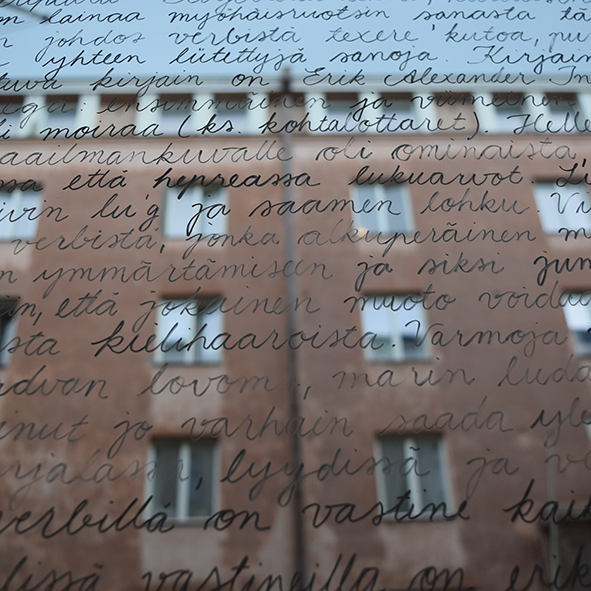 on lainaa myöhäisruotsin sanasta
n johdos verbistä texere 'kutoa,
yhteen lütettyjä sanoja. Kirjain
tuva kirjain on Erik Alexander In
ensimmäinen ja viimeinen
li moiraa (ks. kohtalottaret). Helle
aailmankuvalle oli ominaista,
sa että hepreassa lukuarvot
ivin lu'g ja saamen lohku. Vi
verbistä, jonka alkuperäinen m
n ymmärtämiseen ja siksi jum
in, että jokainen muoto voidaa
sta kielihaaroista. Varmoja
advan lovom, marin luda
inut jo varhain saada yle
rjalassa, lyydissä ja ve
verbillä on vastine kai
lissä vastineilla on erik